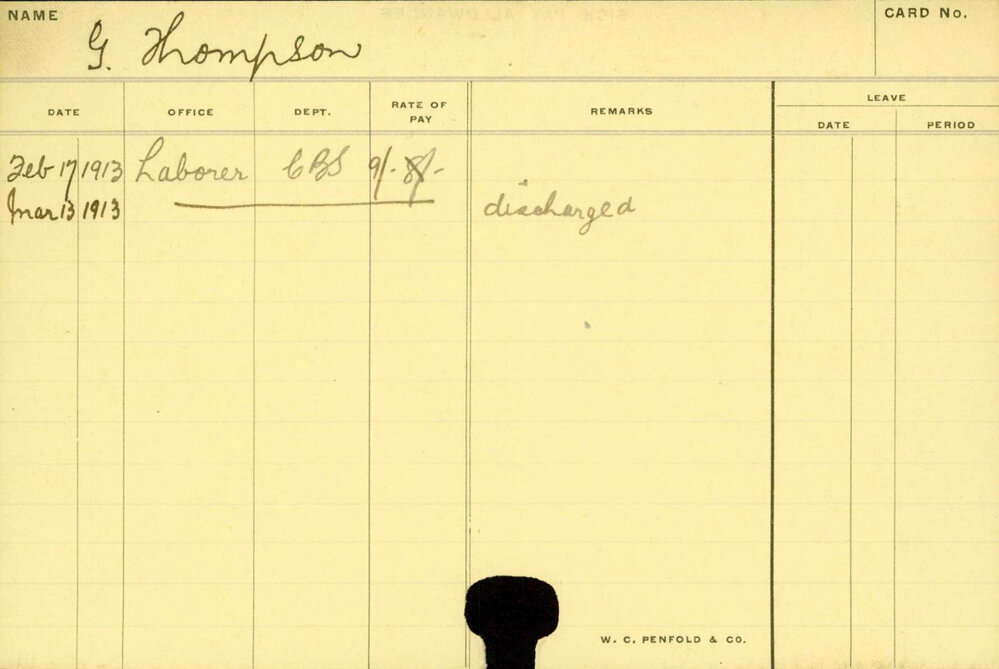 NAME
G. Thompson
CARD No.
DATE OFFICE DEPT. RATE OF PAY REMARKS LEAVE
DATE PERIOD
Feb 17 1913 Laborer CBS 9/- 8/-
Mar 13 1913 discharged
W. C. PENFOLD & CO.